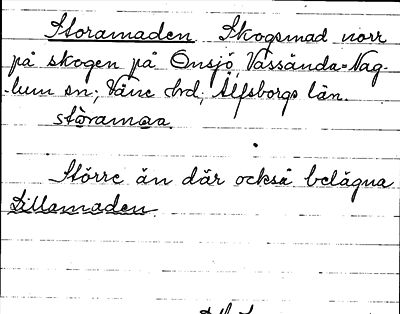 Storamaden Skogsmad norr
på skogen på Onsjö, Vassända-Nag-
-lum sn; Väne hd; Älfsborgs län.
stòramaa.
Större än där också belägna
Lillamaden.